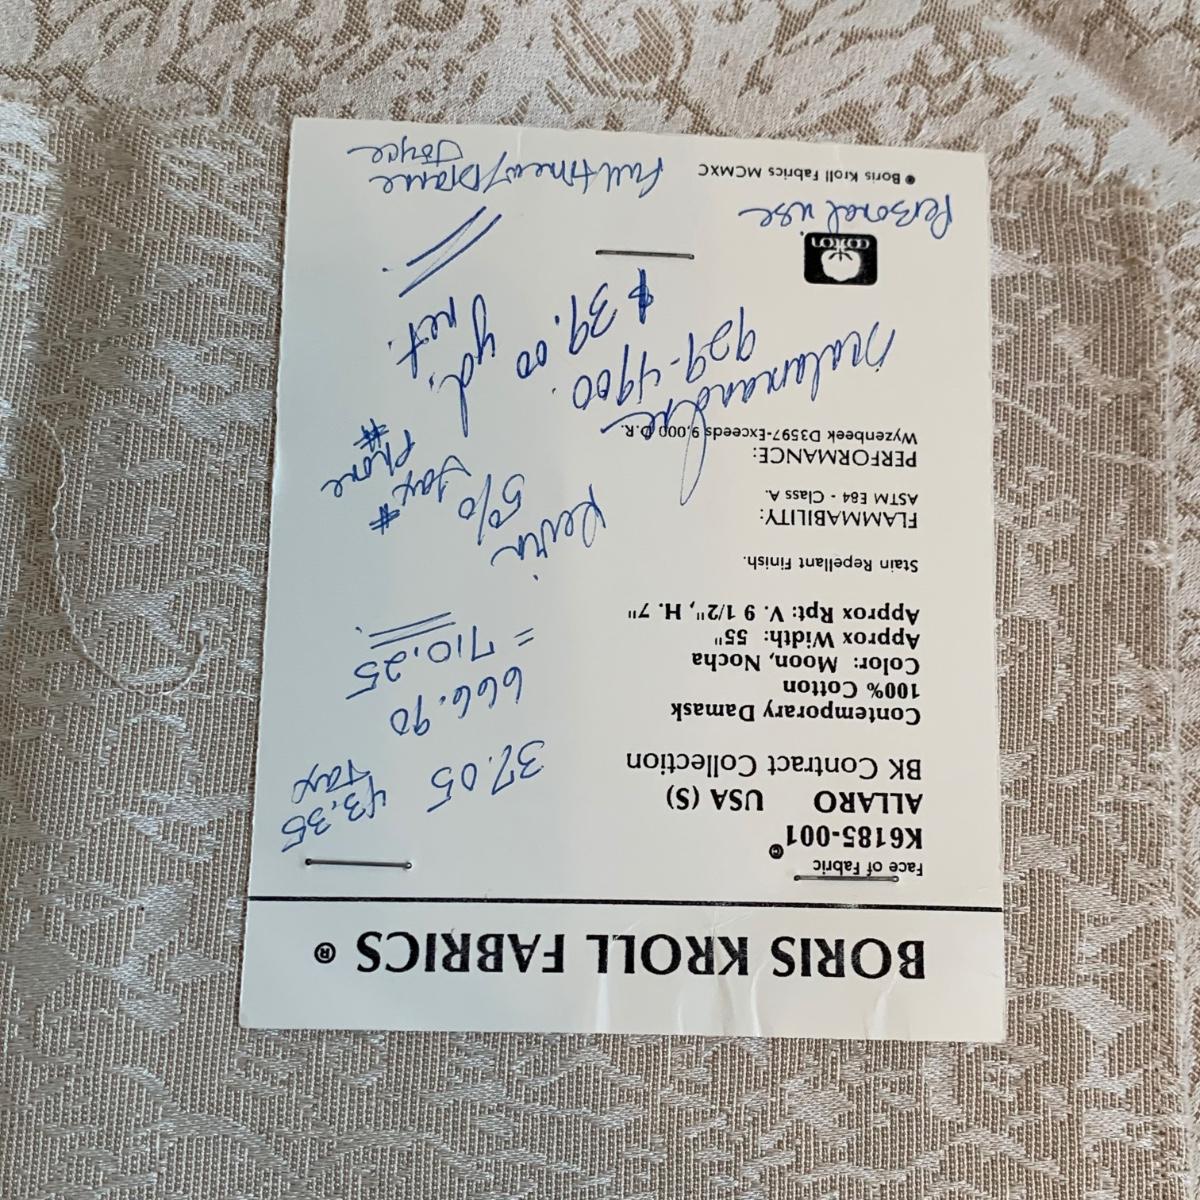 BORIS KROLL FABRICS ®
Face of Fabric
K6185-001©
ALLARO USA (S)
BK Contract Collection
Contemporary Damask
100% Cotton
Color: Moon, Nocha
Approx Width: 55"
Approx Rpt: V. 9 1/2", H. 7"
Stain Repellant Finish.
FLAMMABILITY:
ASTM E84 - Class A.
PERFORMANCE:
Wyzenbeek D3597-Exceeds 9,000 D.R.
cotton
© Boris Kroll Fabrics MCMXC
43.35
Tax
37.05
666.90
= 710.25
Kevin
5% tax #
Phone
#
929-4900
$39.00 yd.
net.
Personal use
Joyce